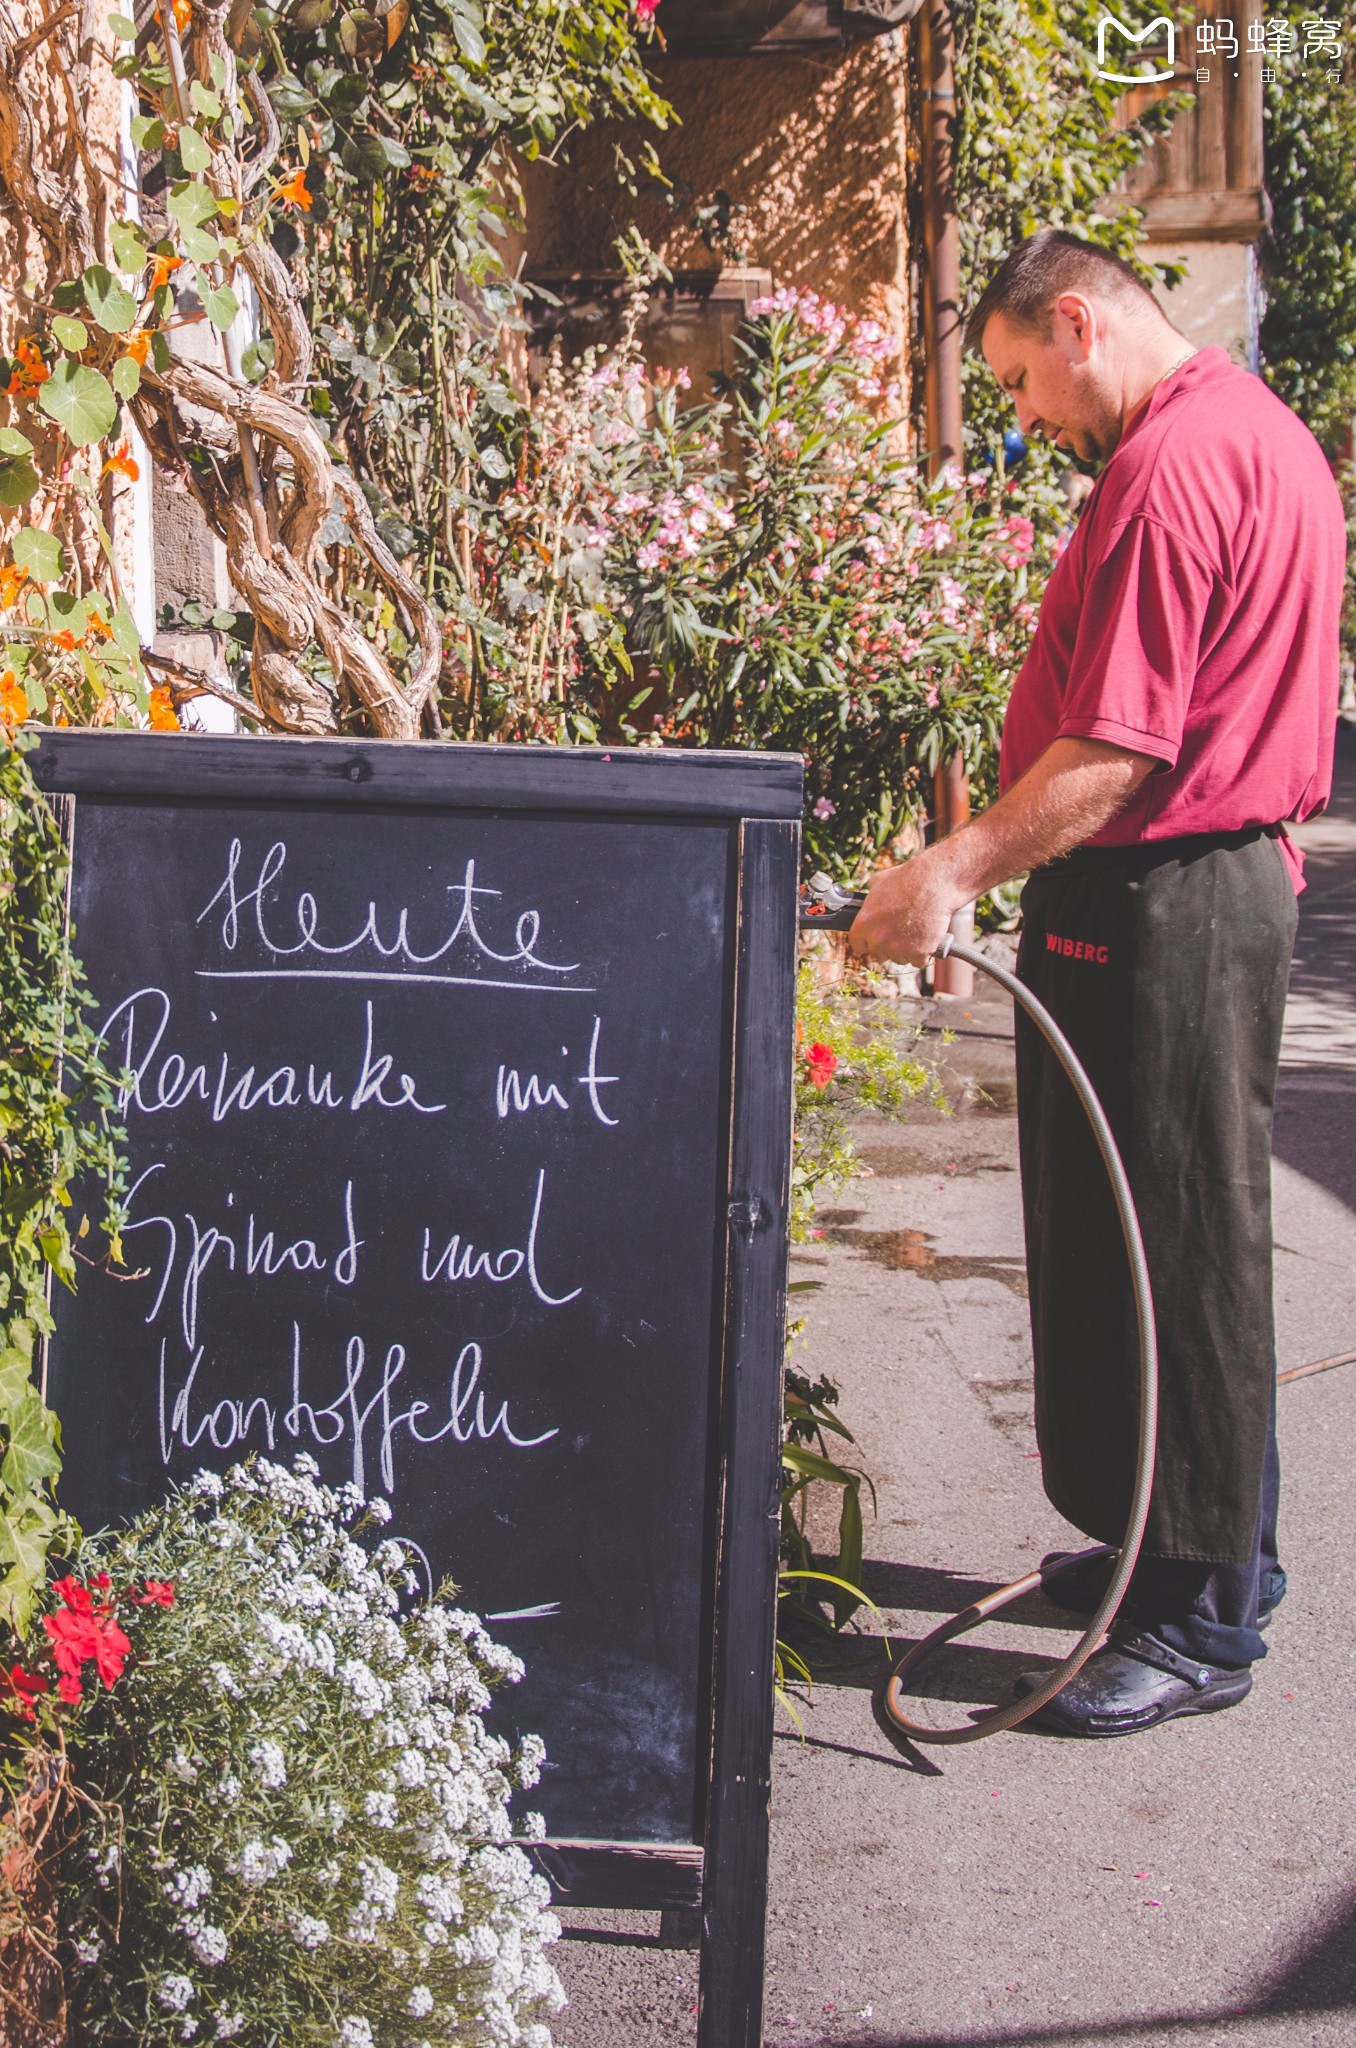 蚂蜂窝
自·由·行
WIBERG
Heute
Reinanke mit
Spinat und
Kartoffeln